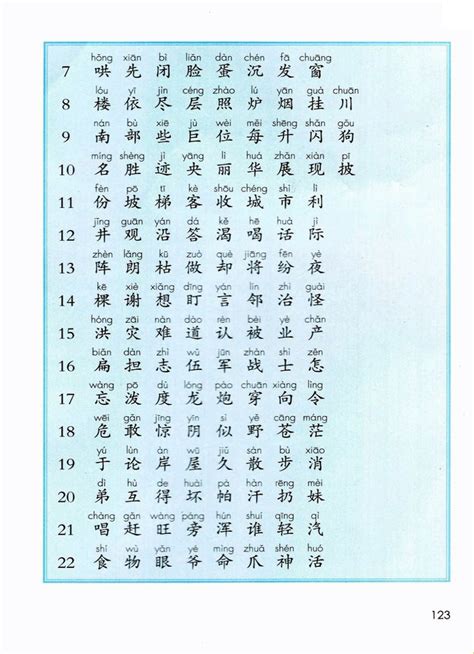 hǒng xiān bì liǎn dàn chén fā chuāng
7 哄 先 闭 脸 蛋 沉 发 窗
lóu yī jìn céng zhào lú yān guà chuān
8 楼 依 尽 层 照 炉 烟 挂 川
nán bù xiē jù wèi měi shēng shǎn gǒu
9 南 部 些 巨 位 每 升 闪 狗
míng shèng jì yāng lì huá zhǎn xiàn pī
10 名 胜 迹 央 丽 华 展 现 披
fèn pō tī kè shōu chéng shì lì
11 份 坡 梯 客 收 城 市 利
jǐng guān yán dá kě hē huà jì
12 井 观 沿 答 渴 喝 话 际
zhèn lǎng kū zuò què jiāng fēn yè
13 阵 朗 枯 做 却 将 纷 夜
kē xiè xiǎng dīng yán lín zhì guài
14 棵 谢 想 盯 言 邻 治 怪
hóng zāi nàn dào rèn bèi yè chǎn
15 洪 灾 难 道 认 被 业 产
biǎn dàn zhì wǔ jūn zhàn shì zěn
16 扁 担 志 伍 军 战 士 怎
wàng pō dù lóng pào chuān xiàng lìng
17 忘 泼 度 龙 炮 穿 向 令
wēi gǎn jīng yīn sì yě cāng máng
18 危 敢 惊 阴 似 野 苍 茫
yú lùn àn wū jiǔ sàn bù xiāo
19 于 论 岸 屋 久 散 步 消
dì hù de huài pà hàn rēng mèi
20 弟 互 得 坏 帕 汗 扔 妹
chàng gǎn wàng páng hún shuí qīng qì
21 唱 赶 旺 旁 浑 谁 轻 汽
shí wù yǎn yé mìng zhuǎ shén huó
22 食 物 眼 爷 命 爪 神 活
123